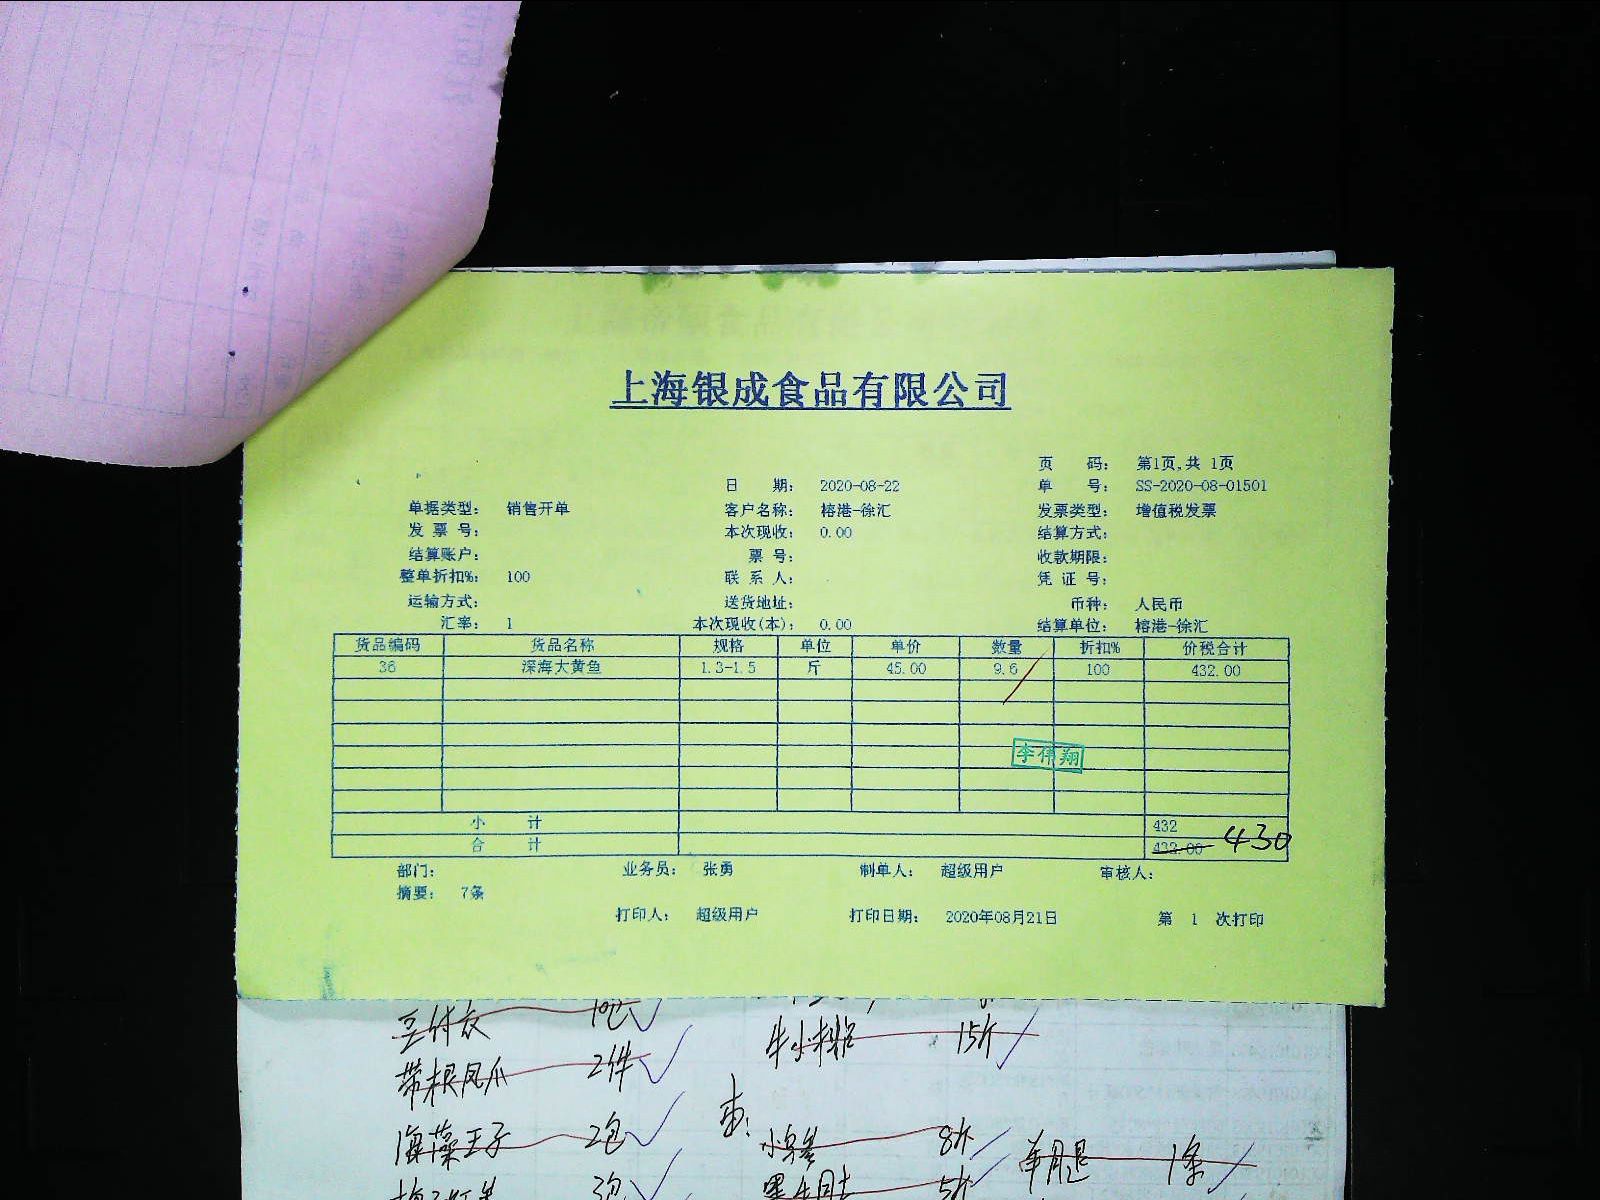 上海银成食品有限公司
页 码: 第1页,共 1页
日 期: 2020-08-22 单 号: SS-2020-08-01501
单据类型: 销售开单 客户名称: 榕港-徐汇 发票类型: 增值税发票
发 票 号: 本次现收: 0.00 结算方式:
结算账户: 票 号: 收款期限:
整单折扣%: 100 联 系 人: 凭 证 号:
运输方式: 送货地址: 币种: 人民币
汇率: 1 本次现收(本): 0.00 结算单位: 榕港-徐汇
货品编码 货品名称 规格 单位 单价 数量 折扣% 价税合计
36 深海大黄鱼 1.3-1.5 斤 45.00 9.6 100 432.00
李伟翔
小 计 432
合 计 432.00 430
部门: 业务员: 张勇 制单人: 超级用户 审核人:
摘要: 7条
打印人: 超级用户 打印日期: 2020年08月21日 第 1 次打印
10包
牛小排 15斤
带根凤爪 2件
海藻王子 2包
8斤 1条
3包 5斤